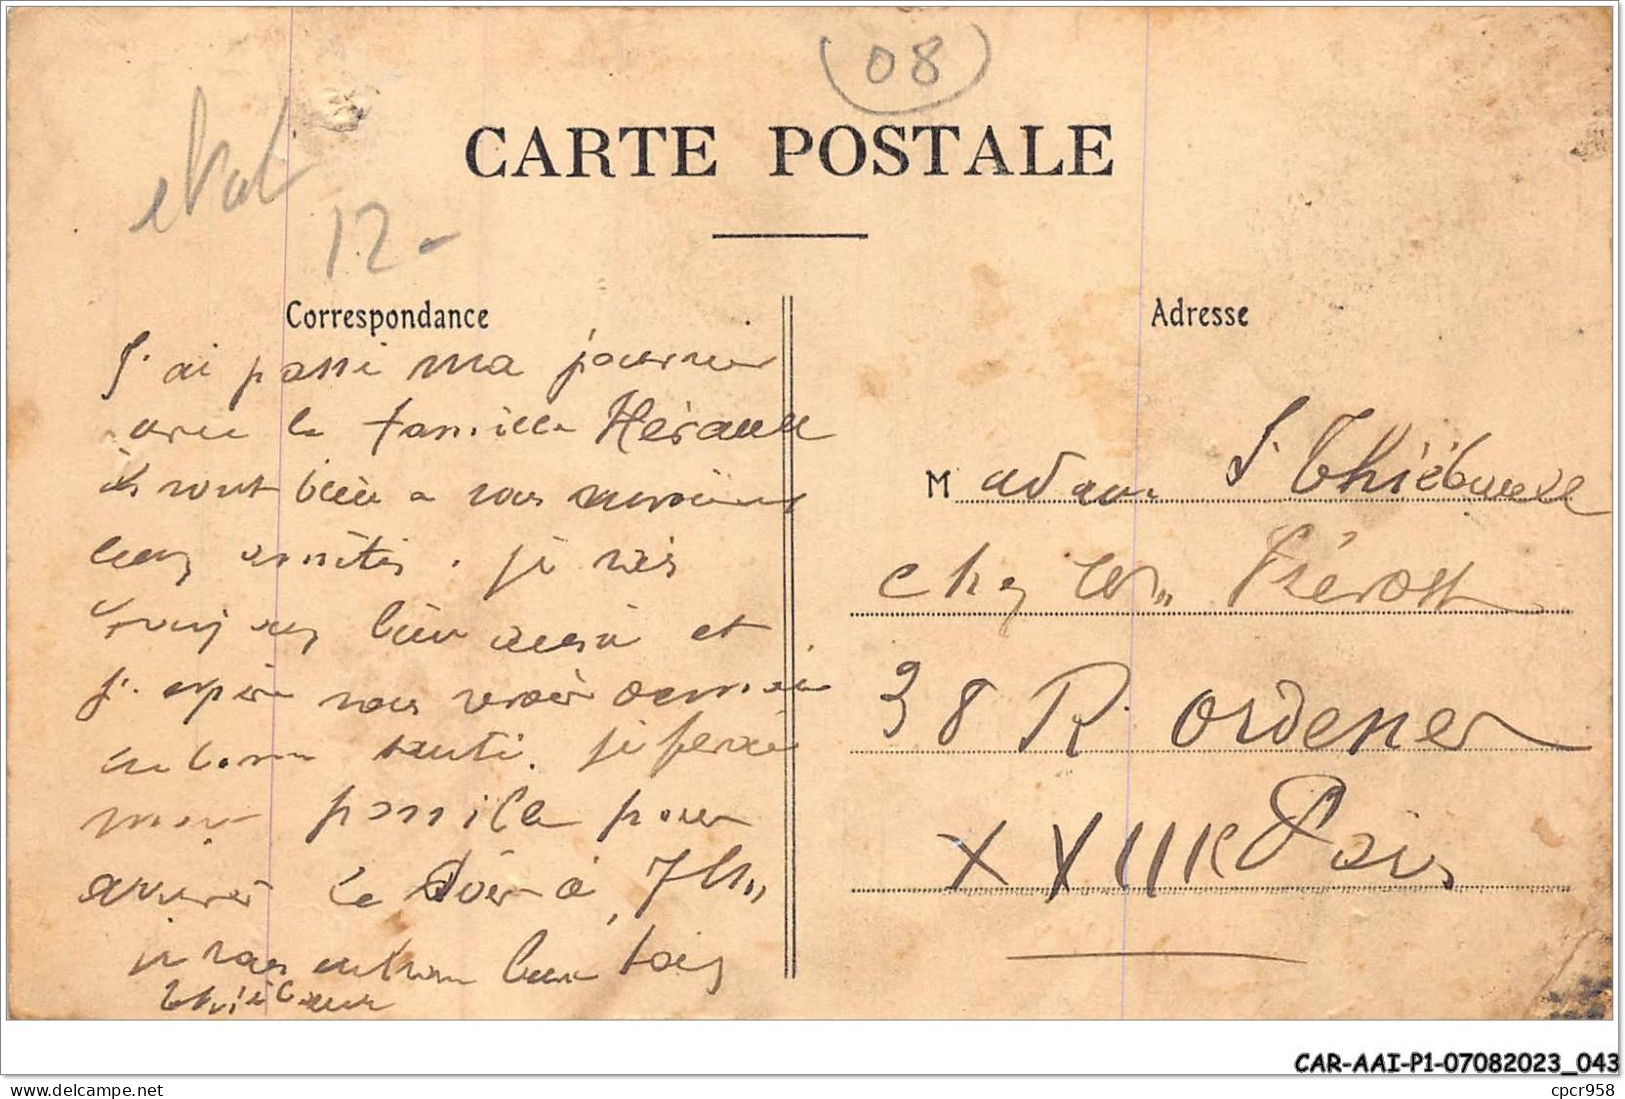 08
12-
CARTE POSTALE
Correspondance
J'ai passé ma journee
avec la famille Hérault
ils vont bien
amitiés. je vais
toujours bien aussi et
j'espère vous revoir
en bonne santé. je ferai
mon possible pour
arriver le soir à 7h
je vous embrasse bien tous
Thiébault
Adresse
Madame J. Thiébault
chez Mr. Prévost
38 R. Ordener
XVIII Paris
CAR-AAI-P1-07082023_043
www.delcampe.net
cpcr958